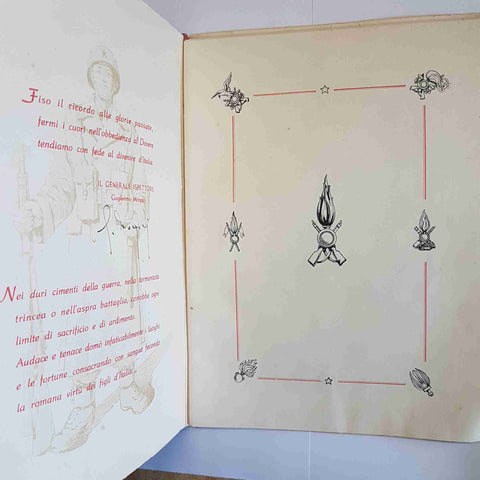 Fiso il ricordo alle glorie passate,
fermi i cuori nell'obbedienza al Dovere
tendiamo con fede al divenire d'Italia.
IL GENERALE ISPETTORE
Guglielmo
Nei duri cimenti della guerra, nella tormentata
trincea o nell'aspra battaglia, conobbe ogni
limite di sacrificio e di ardimento.
Audace e tenace domò infaticabilmente i luoghi
e le fortune consacrando con sangue fecondo
la romana virtù dei figli d'Italia.